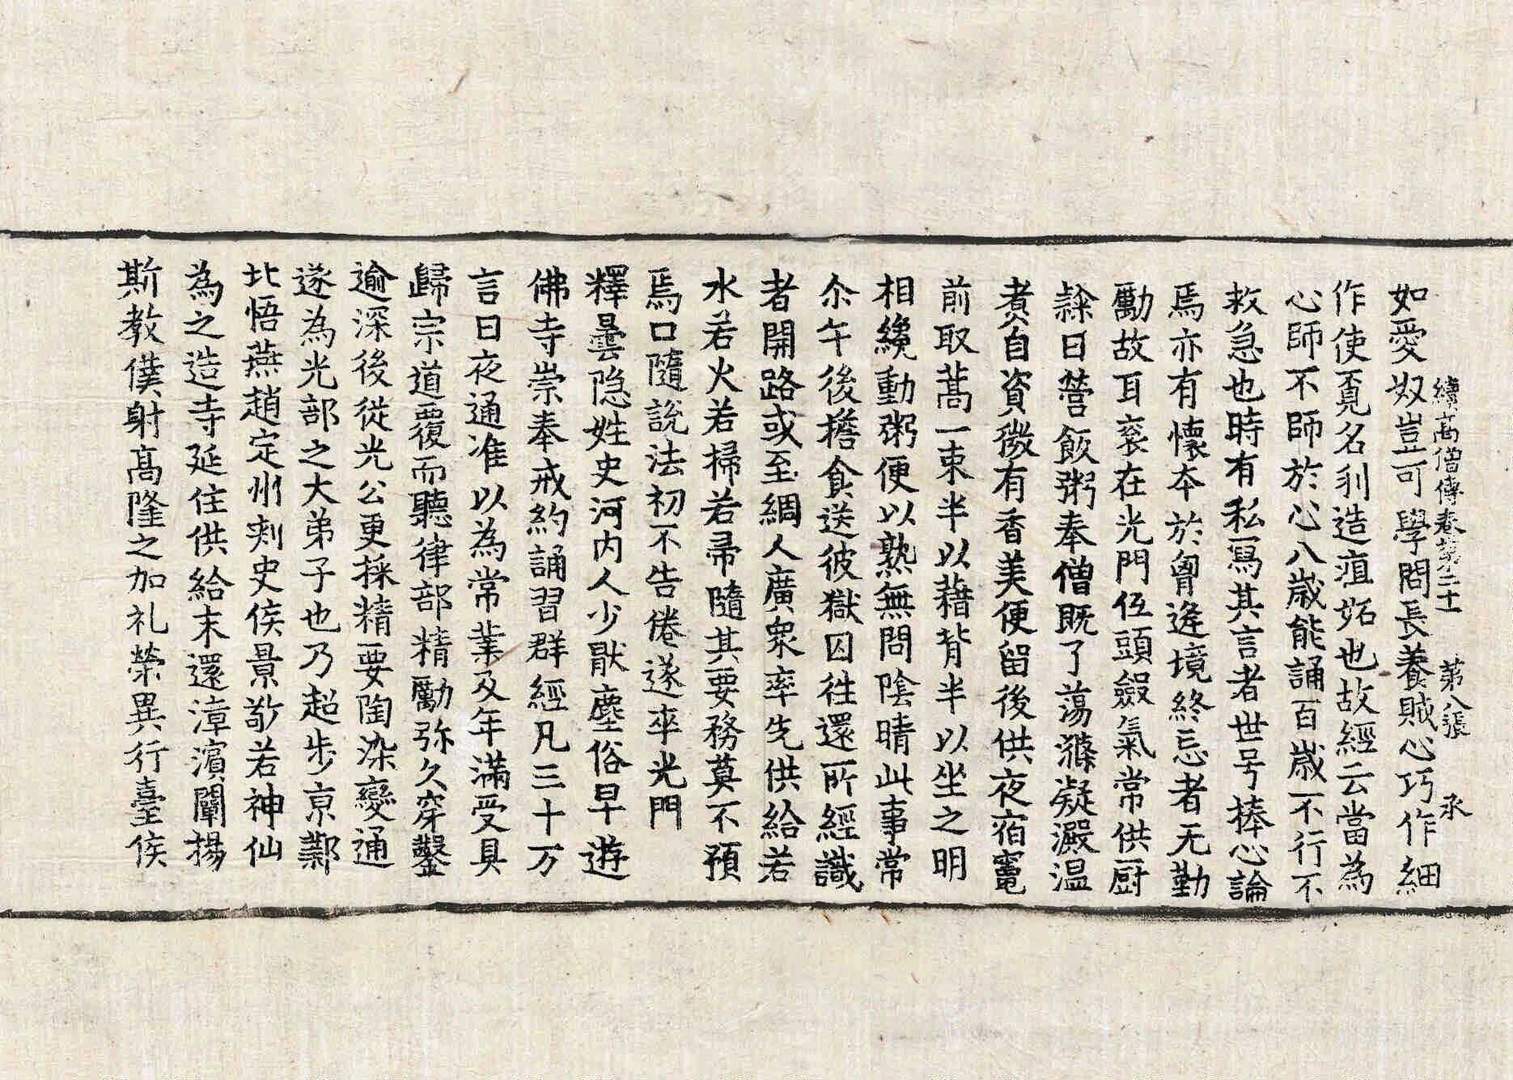 續高僧傳卷第二十一 第八張 承
如愛奴豈可學問長養賊心巧作細
作使覓名利造疽妬也故經云當為
心師不師於心八歲能誦百歲不行不
救急也時有私寫其言者世号捧心論
焉亦有懷本於胷逄境終忘者无勤
勵故耳裒在光門伍頭斂氣常供厨
隸日營飯粥奉僧既了蕩滌凝澱温
煑自資微有香美便留後供夜宿竈
前取蒿一束半以藉背半以坐之明
相纔動粥便以熟無問陰晴此事常
尒午後擔食送彼獄囚徃還所經識
者開路或至綢人廣衆率先供給若
水若火若掃若帚隨其要務莫不預
焉口隨說法初不告倦遂卒光門
釋曇隐姓史河内人少猒塵俗早遊
佛寺崇奉戒約誦習群經凡三十万
言日夜通准以為常業及年滿受具
歸宗道覆而聽律部精勵弥久穿鑿
逾深後從光公更採精要陶染變通
遂為光部之大弟子也乃超步京鄴
北悟燕趙定州刾史侯景敬若神仙
為之造寺延住供給末還漳濱闡揚
斯教僕射高隆之加礼榮異行臺侯